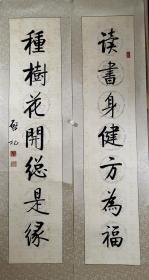 读書身健方為福
種樹花開総是缘
啟功